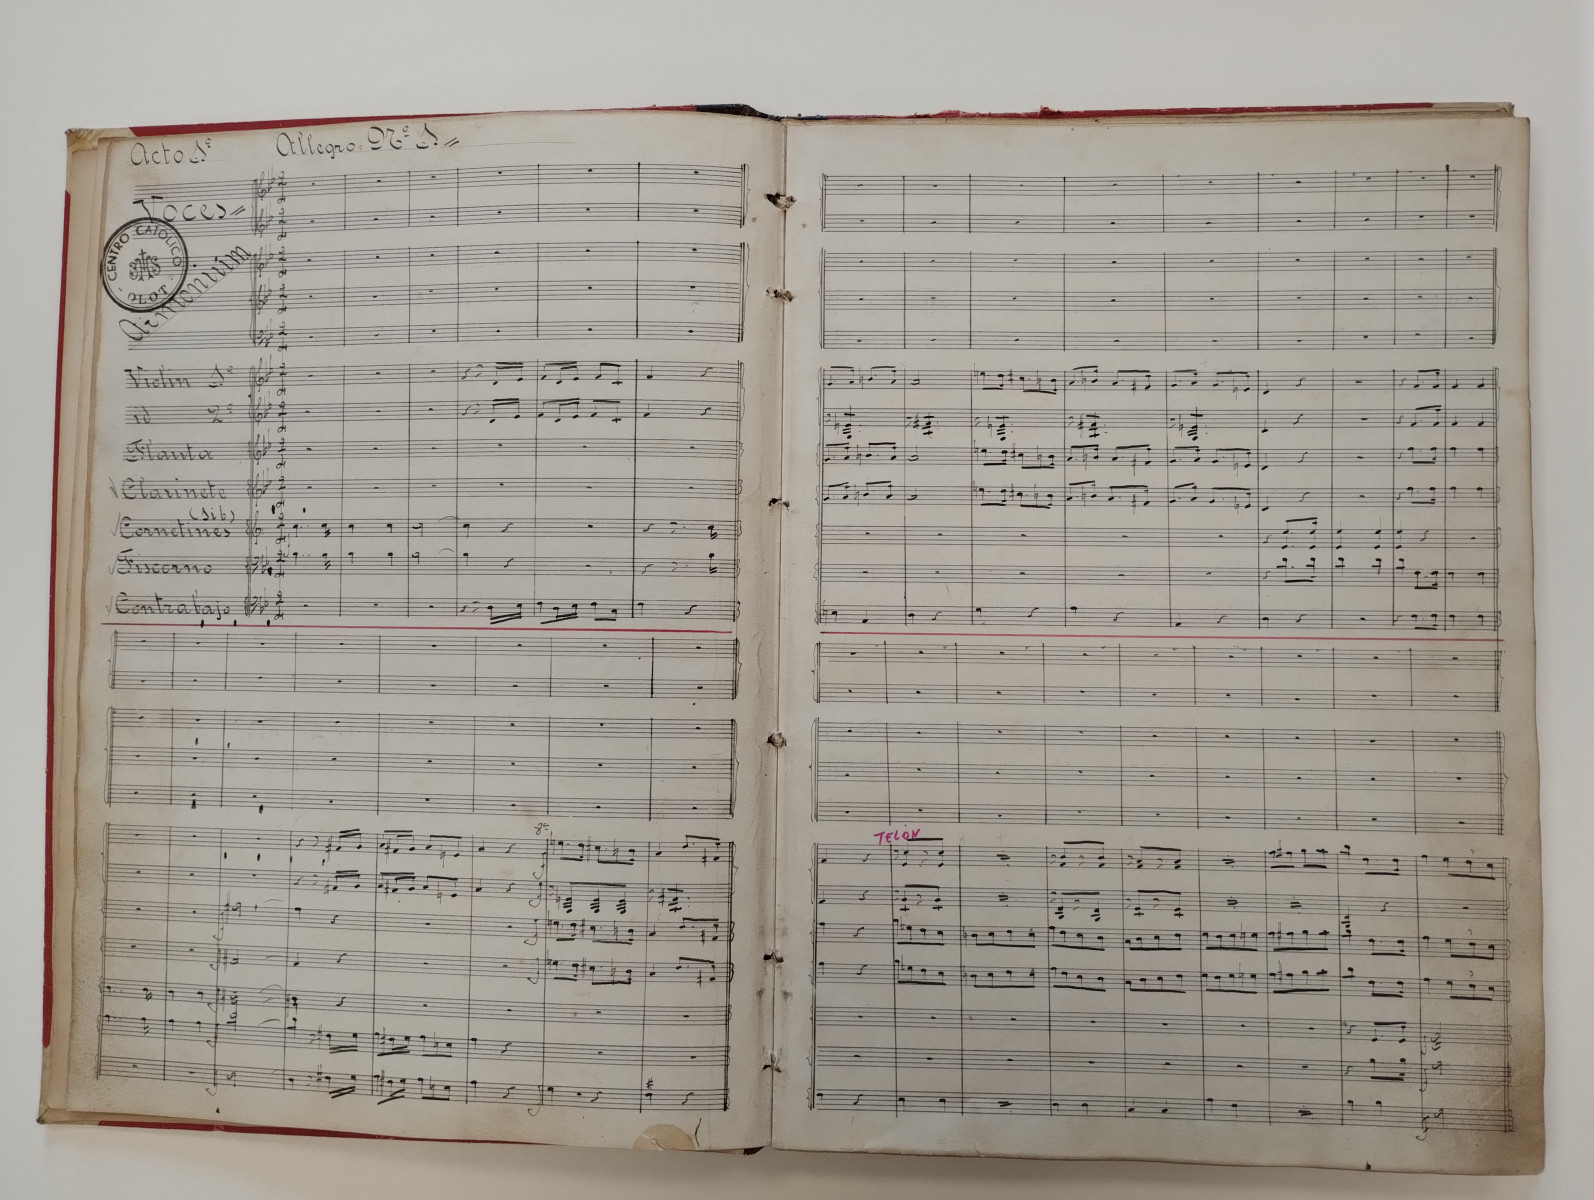 Acto 1º Allegro. Nº 1
Voces
CENTRO CATOLICO
OLOT
Armonium
Violin 1º
id 2º
Flauta
Clarinete
(Sib)
Cornetines
Fiscorno
Contrabajo
8ª
TELÓN